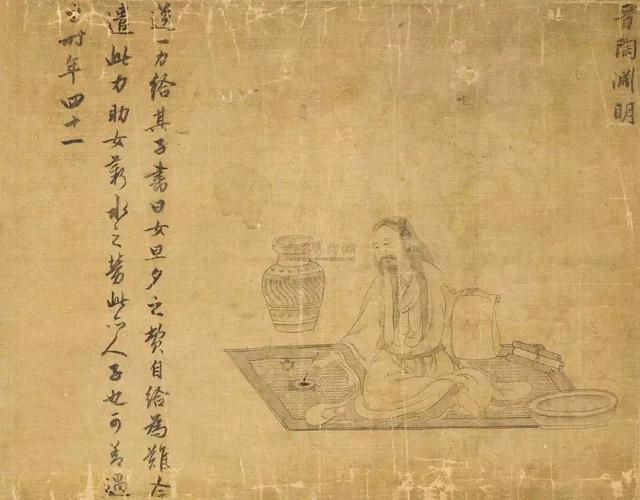 晋陶渊明
送一力给其子书曰女旦夕之费自给为难今
遣此力助女薪水之劳此亦人子也可善遇
之时年四十一